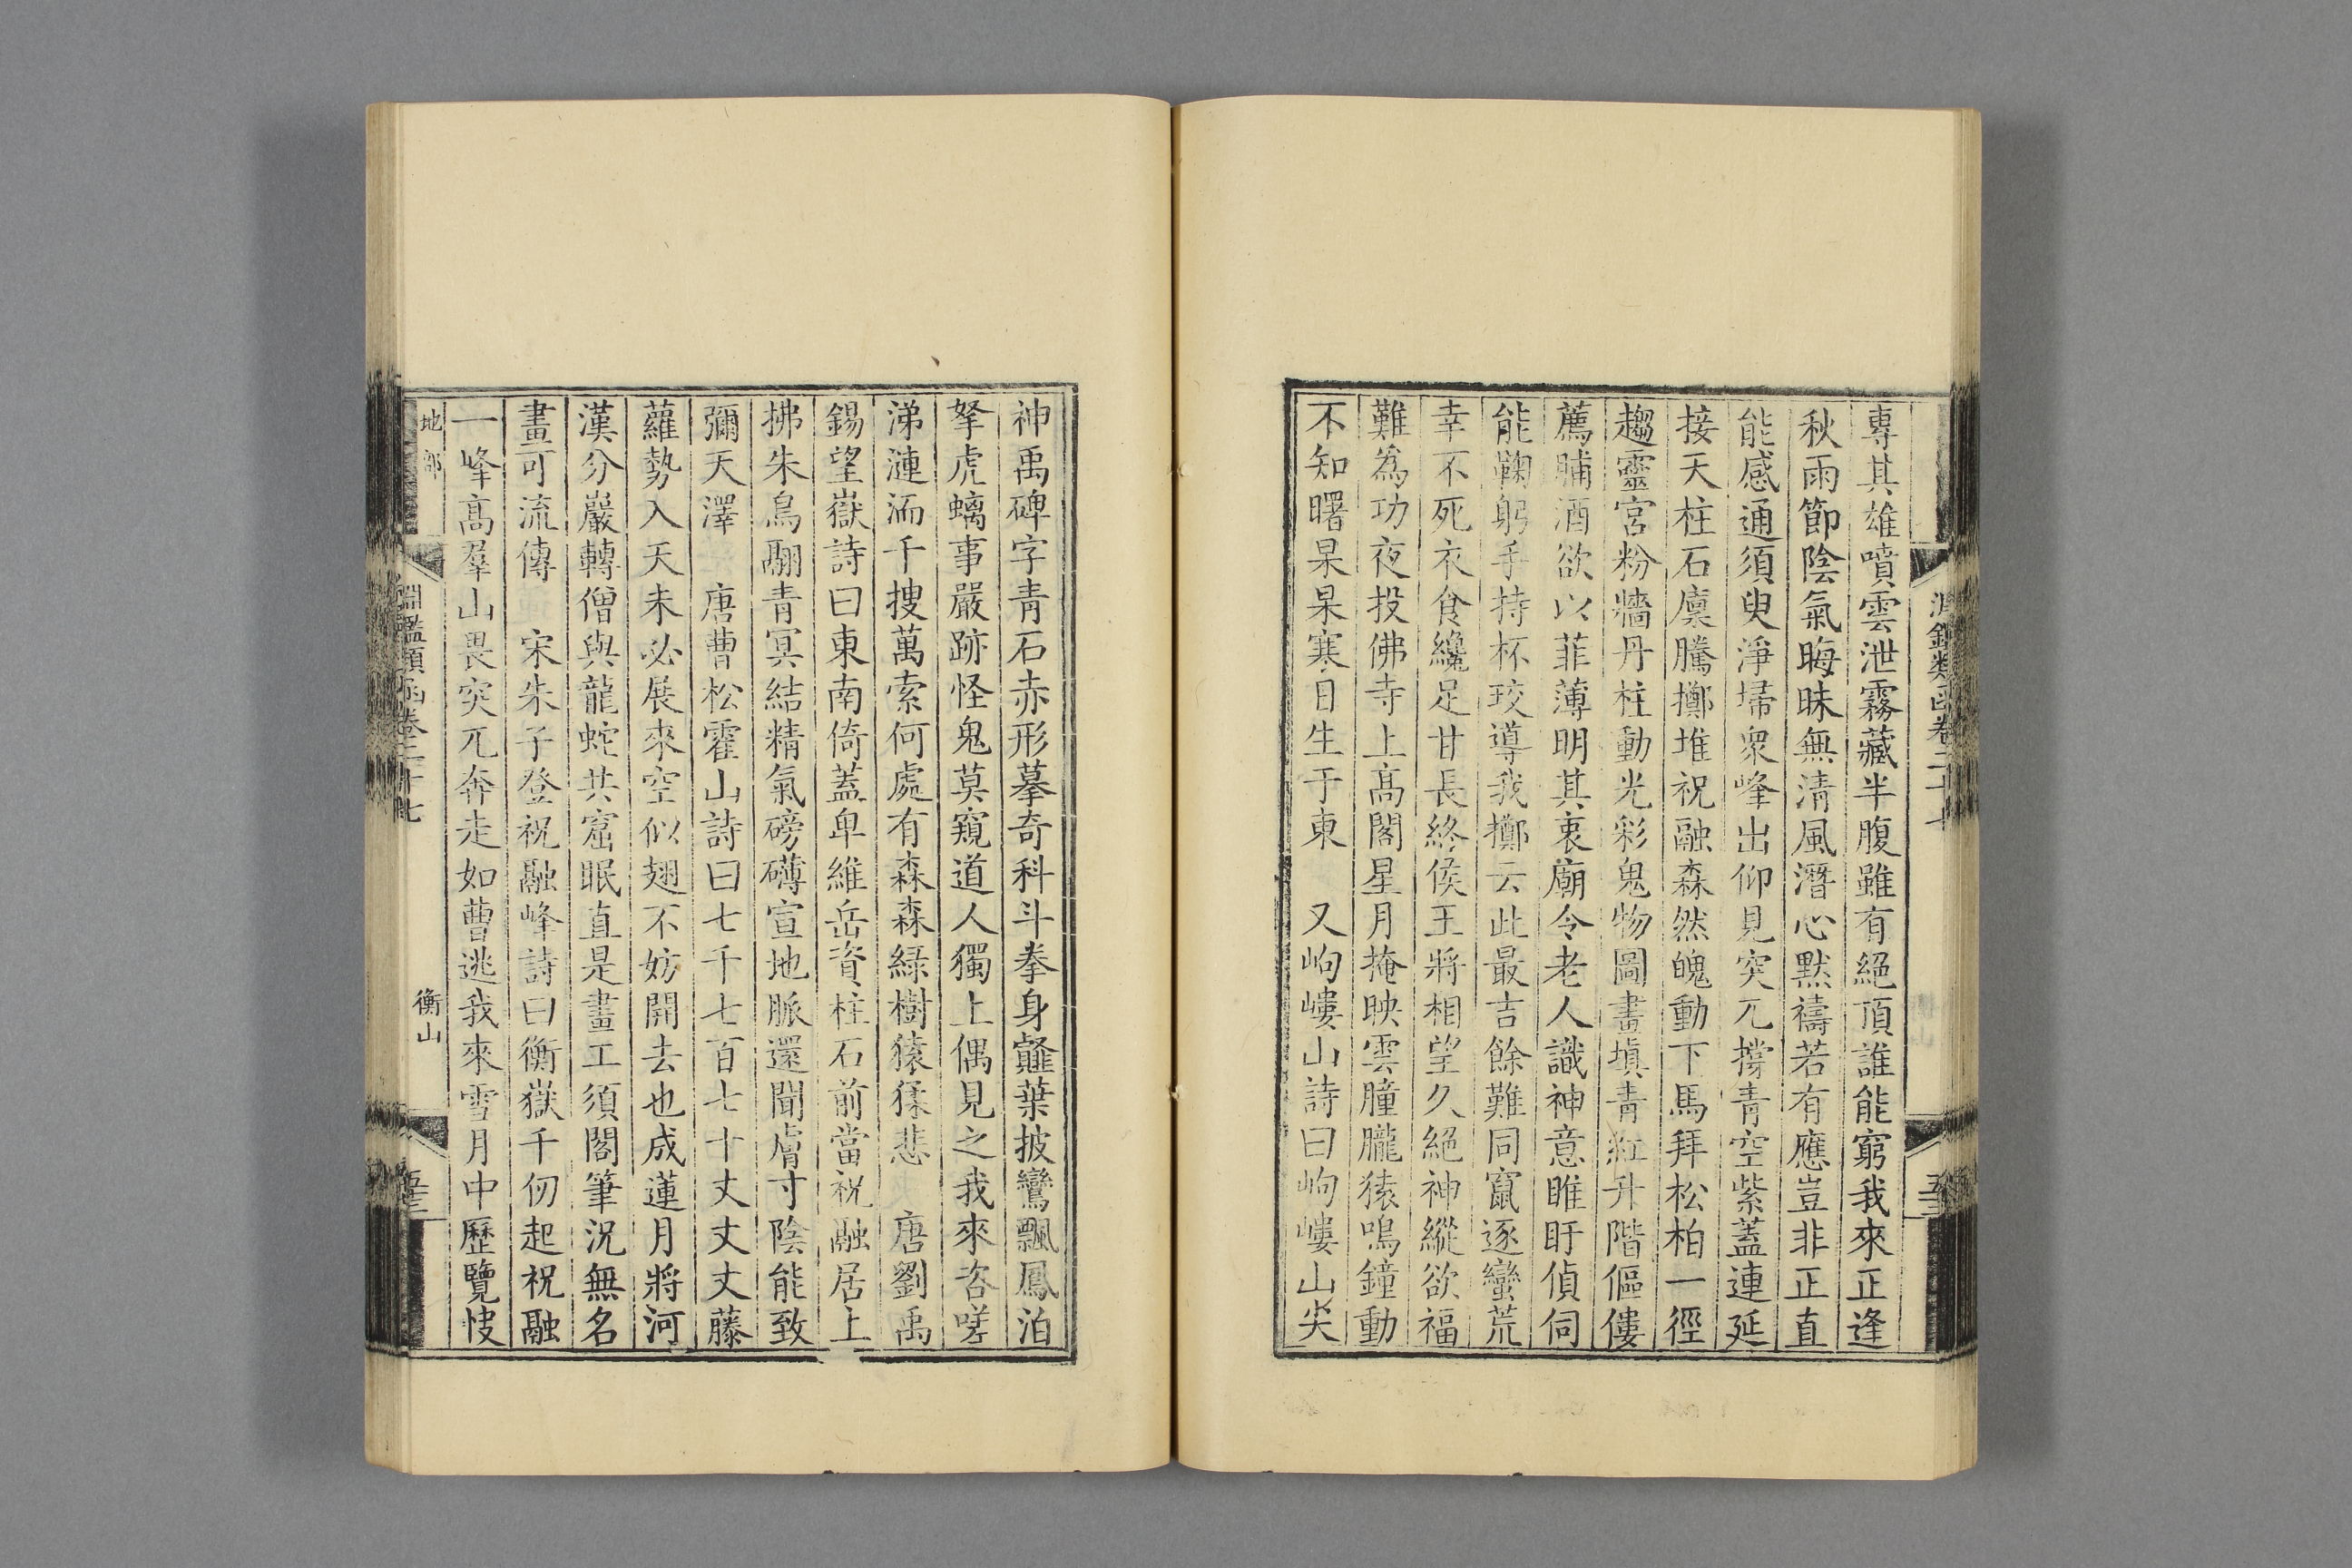 專其雄噴雲泄霧藏半腹雖有絕頂誰能窮我來正逢
秋雨節陰氣晦昧無清風潛心默禱若有應豈非正直
能感通須臾淨埽衆峰出仰見突兀撐青空紫蓋連延
接天柱石廩騰擲堆祝融森然魄動下馬拜松柏一徑
趨靈宮粉牆丹柱動光彩鬼物圖畫塡青紅升階傴僂
薦脯酒欲以菲薄明其衷廟令老人識神意睢盱偵伺
能鞠躬手持杯珓導我擲云此最吉餘難同竄逐蠻荒
幸不死衣食纔足甘長終侯王將相望久絕神縱欲福
難為功夜投佛寺上高閣星月掩映雲朣朧猿鳴鐘動
不知曙杲杲寒日生于東　又岣嶁山詩曰岣嶁山尖
神禹碑字青石赤形摹奇科斗拳身薤葉披鸞飄鳳泊
拏虎螭事嚴跡怪鬼莫窺道人獨上偶見之我來咨嗟
涕漣洏千搜萬索何處有森森綠樹猿猱悲　唐劉禹
錫望嶽詩曰東南倚蓋卑維岳資柱石前當祝融居上
拂朱鳥翮青冥結精氣磅礴宣地脈還聞膚寸陰能致
彌天澤　唐曹松霍山詩曰七千七百七十丈丈丈藤
蘿勢入天未必展來空似翅不妨開去也成蓮月將河
漢分巖轉僧與龍蛇共窟眠直是畫工須閣筆況無名
畫可流傳　宋朱子登祝融峰詩曰衡嶽千仞起祝融
一峰高羣山畏突兀奔走如曹逃我來雪月中歷覽快
地部　淵鑑類函卷二十七　衡山